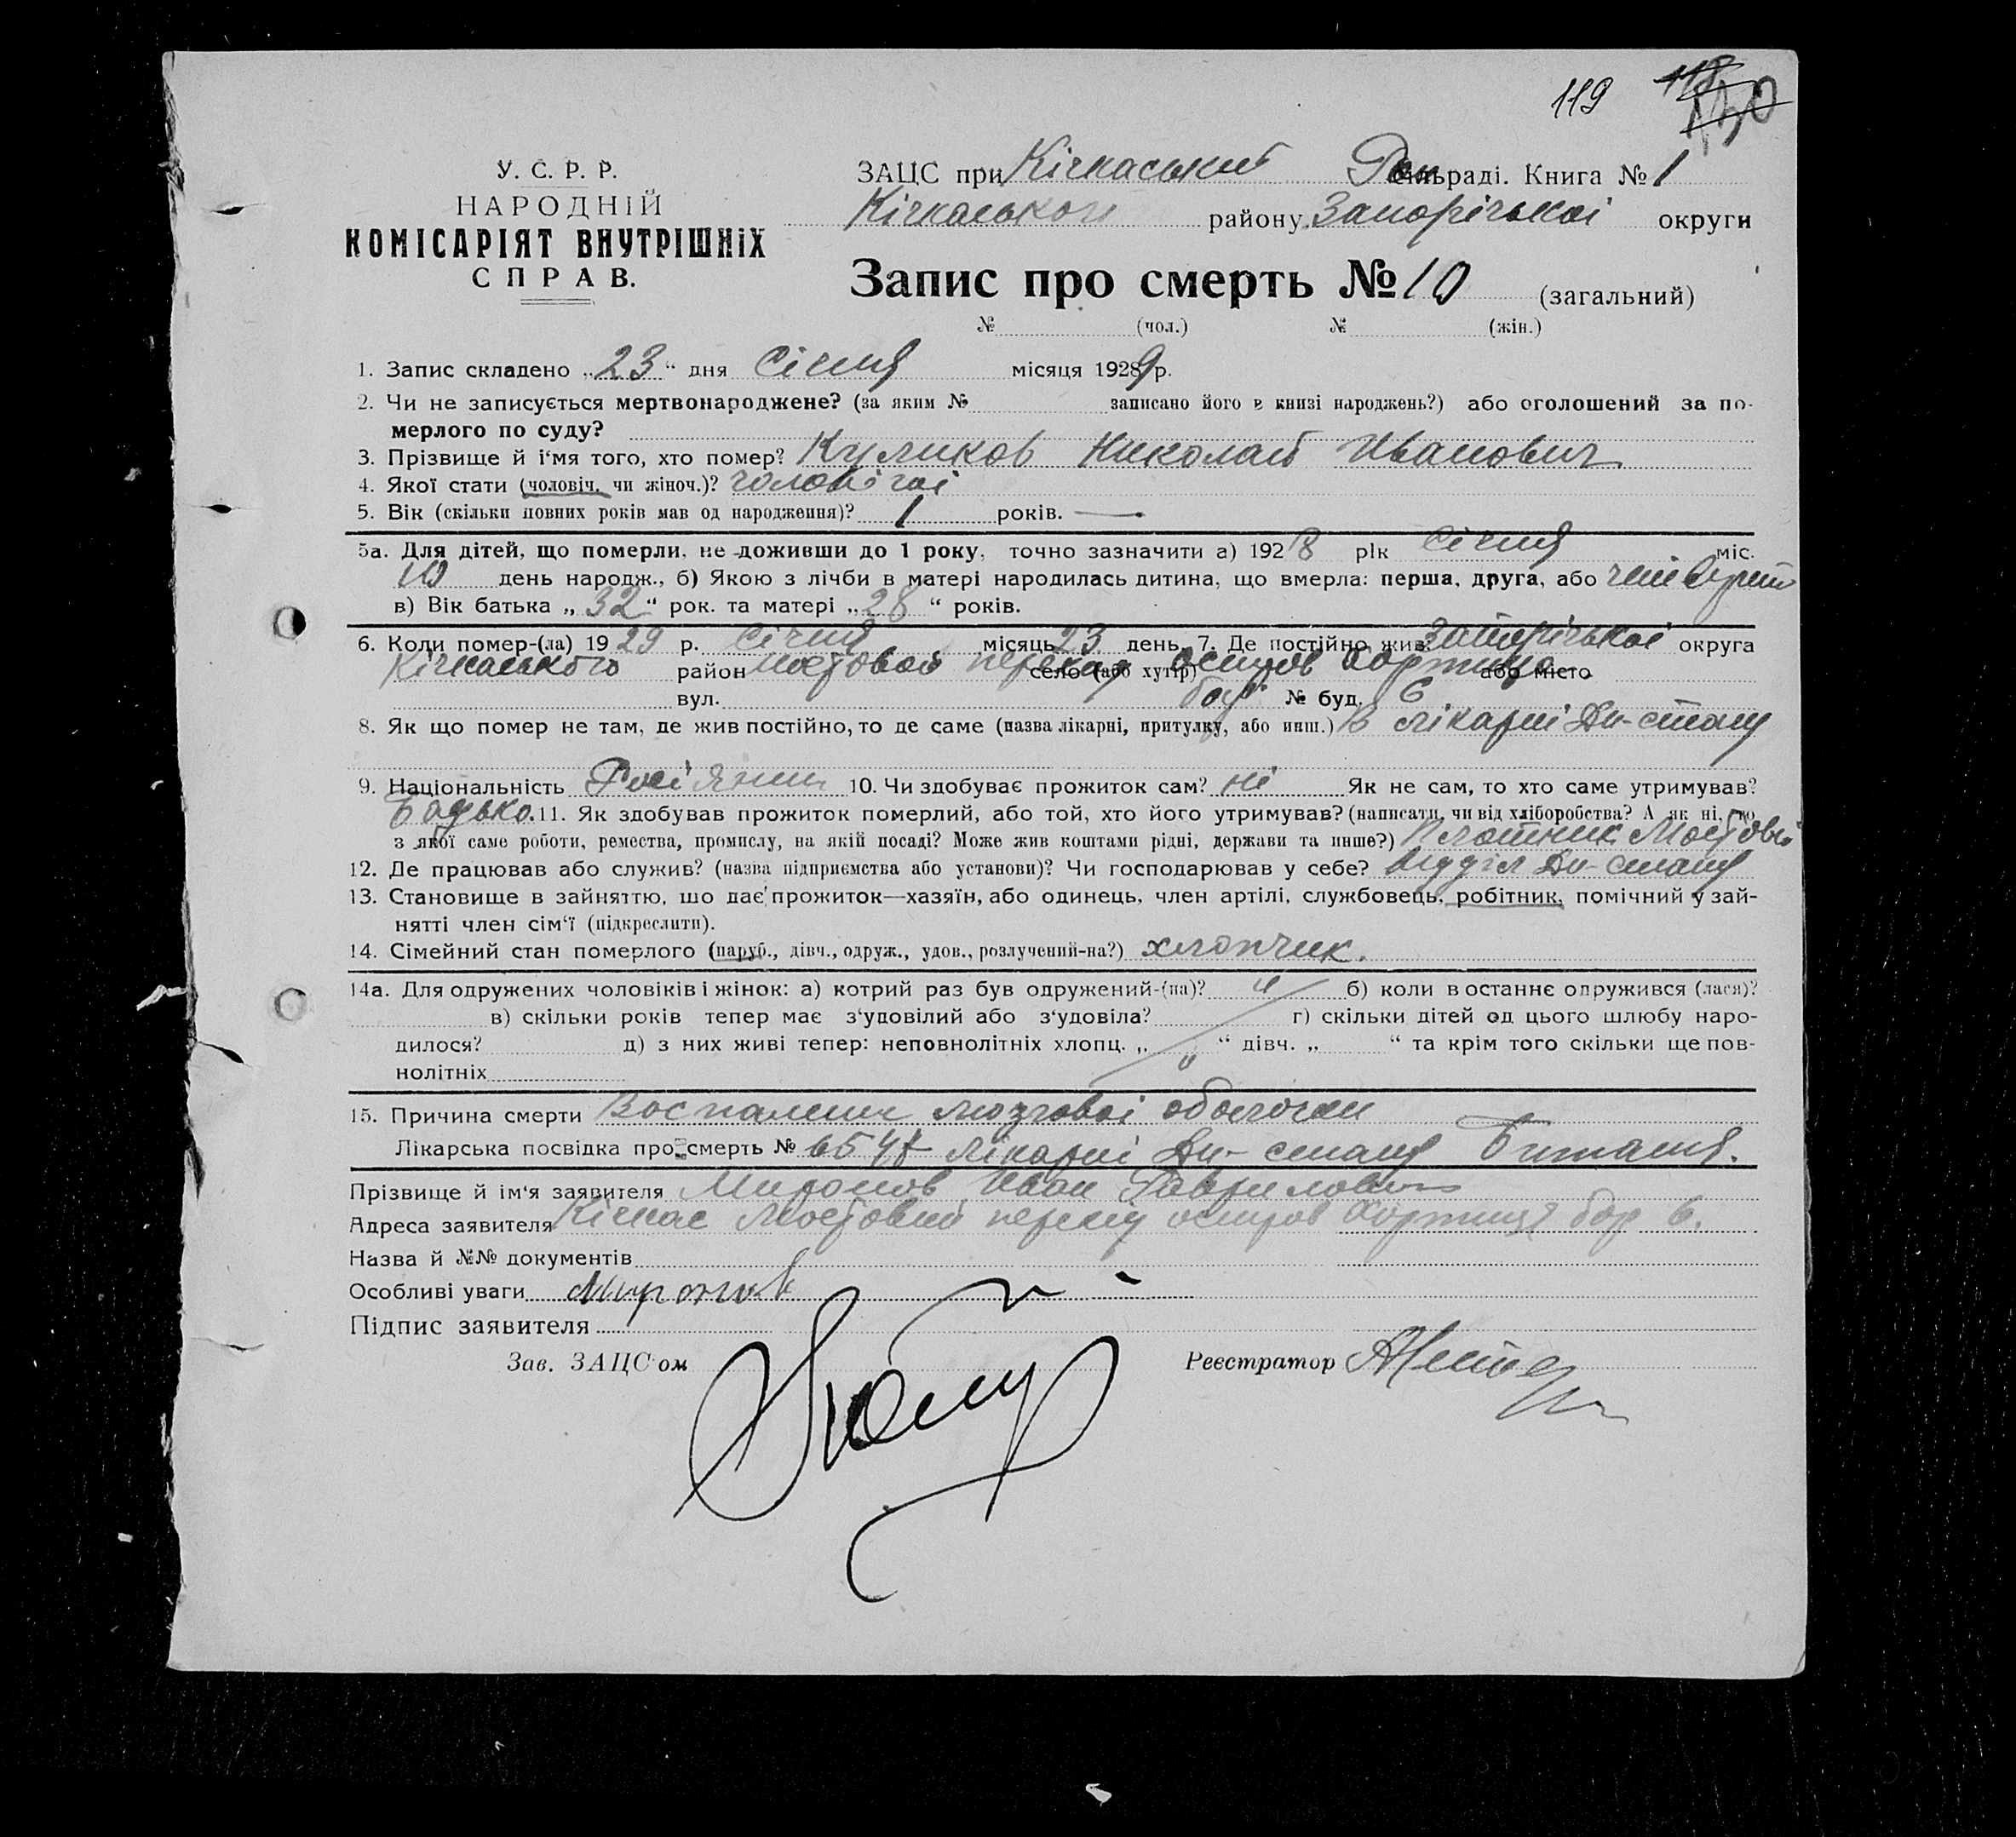 119 118 150
У. С. Р. Р.
НАРОДНІЙ
КОМІСАРІЯТ ВНУТРІШНІХ
СПРАВ.
ЗАЦС при Кічкаський Рай сільраді. Книга № 1
Кічкаського району Запорічькоі округи
Запис про смерть № 10 (загальний)
№ (чол.) № (жін.)
1. Запис складено „23“ дня Січня місяця 1929 р.
2. Чи не записується мертвонароджене? (за яким № записано його в книзі народжень?) або оголошений за по-
мерлого по суду?
3. Прізвище й і'мя того, хто помер? Куликов Николай Иванович
4. Якої стати (чоловіч. чи жіноч.)? чоловічоі
5. Вік (скільки повних років мав од народження)? 1 років. —
5а. Для дітей, що померли, не доживши до 1 року, точно зазначити а) 1928 рік Січня міс.
10 день народж., б) Якою з лічби в матері народилась дитина, що вмерла: перша, друга, або
в) Вік батька „32“ рок. та матері „28“ років.
6. Коли помер-(ла) 1929 р. Січня місяць 23 день. 7. Де постійно жив? Запорічькоі округа
Кічкаського район Мостовой переход село (або хутір) остров Хортица або місто
вул. бар. № буд. 6
8. Як що помер не там, де жив постійно, то де саме (назва лікарні, притулку, або инш.) В лікарні Дн-стану
9. Національність Росіянин 10. Чи здобуває прожиток сам? ні Як не сам, то хто саме утримував?
Батько. 11. Як здобував прожиток померлий, або той, хто його утримував? (написати, чи від хліборобства? А як ні, то
з якої саме роботи, ремества, промислу, на якій посаді? Може жив коштами рідні, держави та инше?) Плотник Мостовій
12. Де працював або служив? (назва підприємства або установи)? Чи господарював у себе? відділ Дн-стану
13. Становище в зайняттю, шо дає прожиток—хазяїн, або одинець, член артілі, службовець, робітник, помічний у зай-
нятті член сім'ї (підкреслити).
14. Сімейний стан померлого (паруб., дівч., одруж., удов., розлучений-на?) хлопчик.
14а. Для одружених чоловіків і жінок: а) котрий раз був одружений-(на)? б) коли востаннє одружився (лася)?
в) скільки років тепер має з'удовілий або з'удовіла? г) скільки дітей од цього шлюбу наро-
дилося? д) з них живі тепер: неповнолітніх хлопц. „ “ дівч. „ “ та крім того скільки ще пов-
нолітніх
15. Причина смерти Воспаления мозговоі оболочки
Лікарська посвідка про смерть № 6547 лікарні Дн-стану
Прізвище й ім'я заявителя Миронов Иван Гаврилович
Адреса заявителя Кічкас Мостовий перехід остров Хортиця бар 6.
Назва й №№ документів
Особливі уваги Миронов
Підпис заявителя
Зав. ЗАЦС'ом Реєстратор